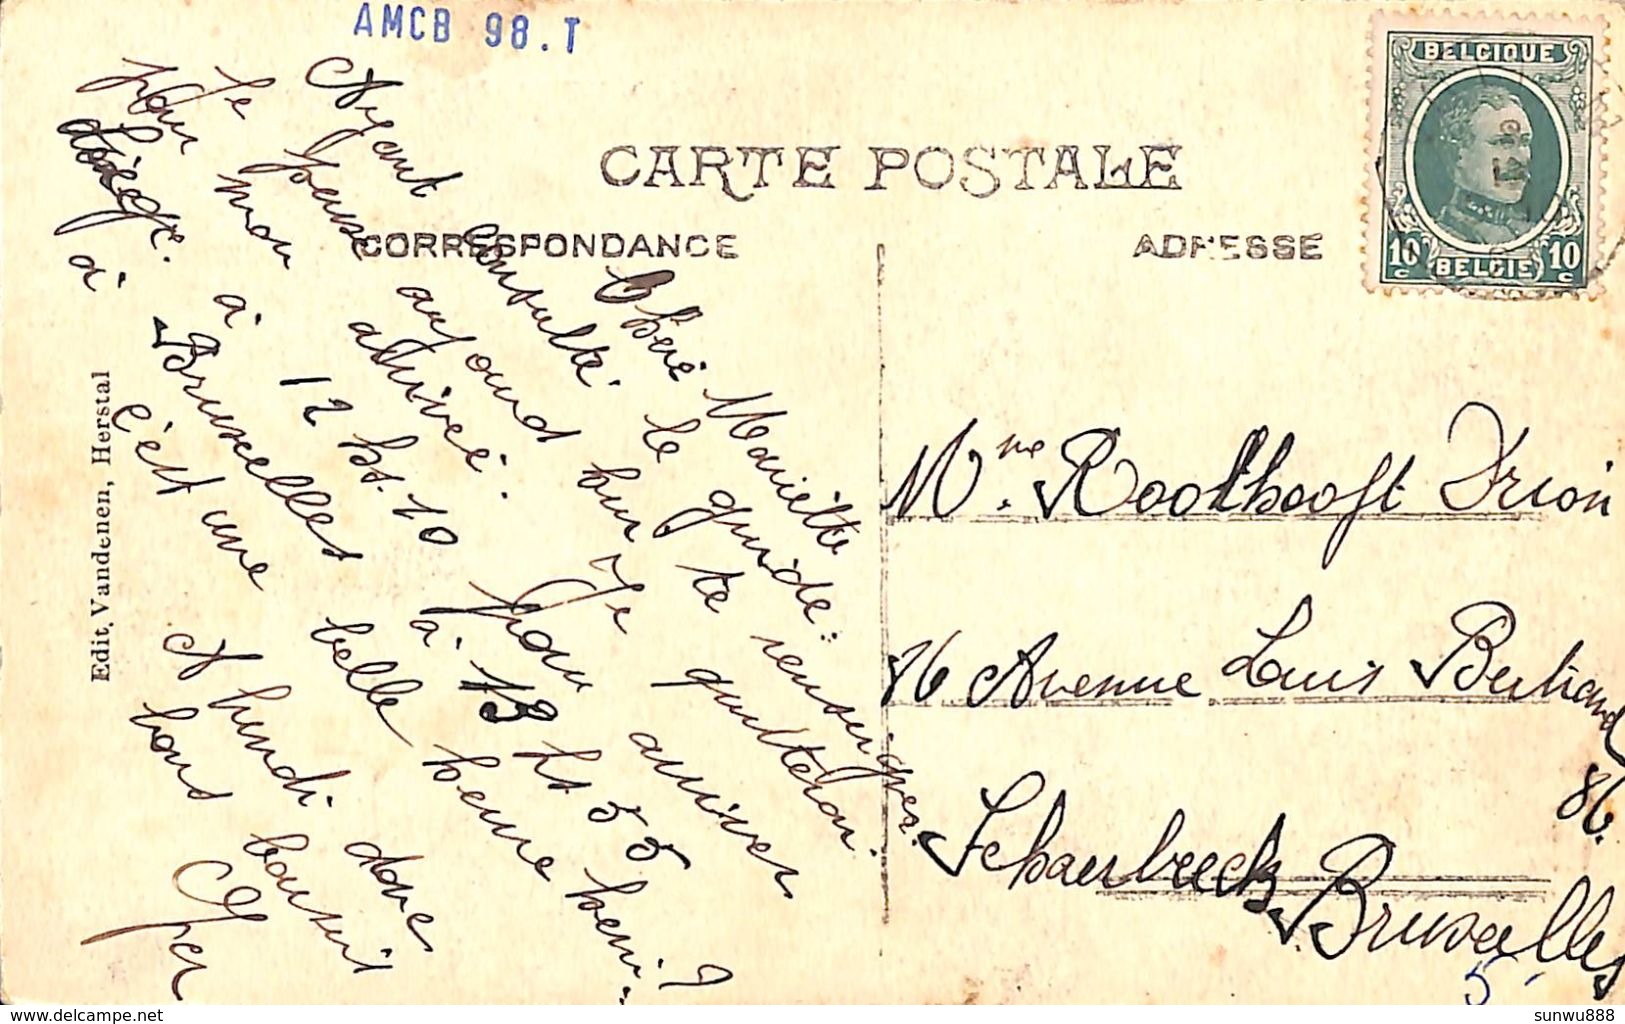 AMCB 98.T
BELGIQUE
10 c BELGIE 10 c
CARTE POSTALE
CORRESPONDANCE
ADRESSE
Edit. Vandenen, Herstal
Chère Mariette
Ayant consulté le guide:
Je pense aujourd'hui te renseigner.
pour mon arrivée. Je quitterai
Liège à 12 hs. 10 pour arriver
à Bruxelles à 13 hs 55
c'est une belle heure hein?
A lundi donc
bons baisers
Mme Roolhooft Drion
86 Avenue Louis Bertrand
86.
Schaerbeeck Bruxelles
5
delcampe.net
sunwu888